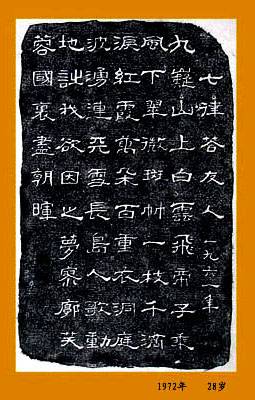 七律答友人 一九六一年
九嶷山上白雲飛帝子乘
風下翠微斑竹一枝千滴
淚紅霞萬朵百重衣洞庭
波湧連天雪長島人歌動
地詩我欲因之夢寥廓芙
蓉國裏盡朝暉
1972年 28岁